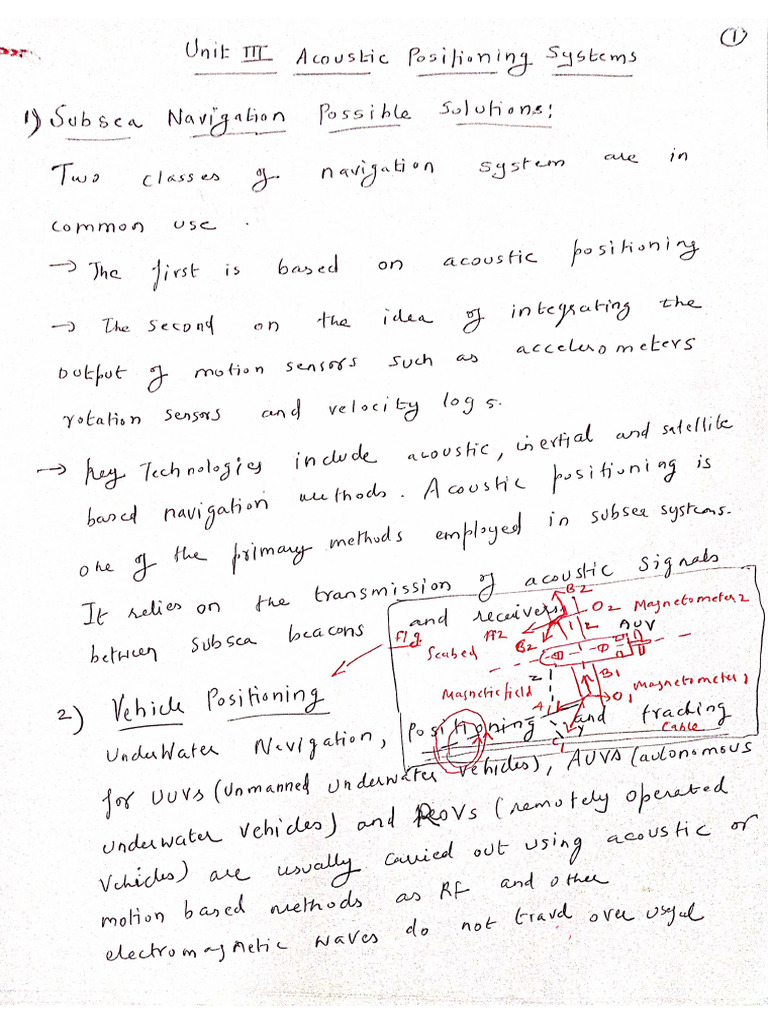 ①
Unit III Acoustic Positioning Systems
1) Subsea Navigation Possible Solutions:
Two classes of navigation system are in
common use.
→ The first is based on acoustic positioning
→ The second on the idea of integrating the
output of motion sensors such as accelerometers
rotation sensors and velocity logs.
→ Key Technologies include acoustic, inertial and satellite
based navigation methods. Acoustic positioning is
one of the primary methods employed in subsea systems.
It relies on the transmission of acoustic signals
between subsea beacons and receivers
Fig.
B2
A2 O2 Magnetometer 2
Seabed B2 1 2 AUV
Z B1
Magnetic field A1 O1 Magnetometer 1
Y Cable
C1
2) Vehicle Positioning
Underwater Navigation, Positioning and tracking
for UUVs (Unmanned underwater vehicles), AUVs (autonomous
underwater vehicles) and ROVs (remotely operated
vehicles) are usually carried out using acoustic or
motion based methods as RF and other
electromagnetic waves do not travel over useful